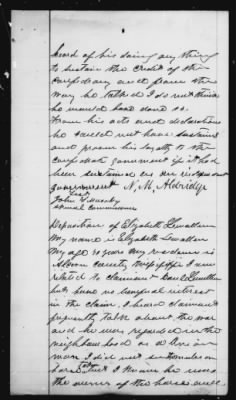 heard of his doing any thing
to sustain the credit of the
confederacy and from the
way he talked I do not think
he would have done so
From his acts and declarations
he could not have sustained
and proven his loyalty to the
confederate government if it had
been sustained as an
government N. M. Aldridge
Test
John
Special Commissioner
Deposition of Elizabeth Lewallen
My name is Elizabeth Lewallen
My age is years my residence is
Alcorn County Mississippi I am
related to claimant Lewallen
but have no beneficial interest
in the claim. I heard claimant
frequently talk about the war
and he was regarded in the
neighborhood as a Union
man I did not see
horse but I know he was
the owner of the horse and